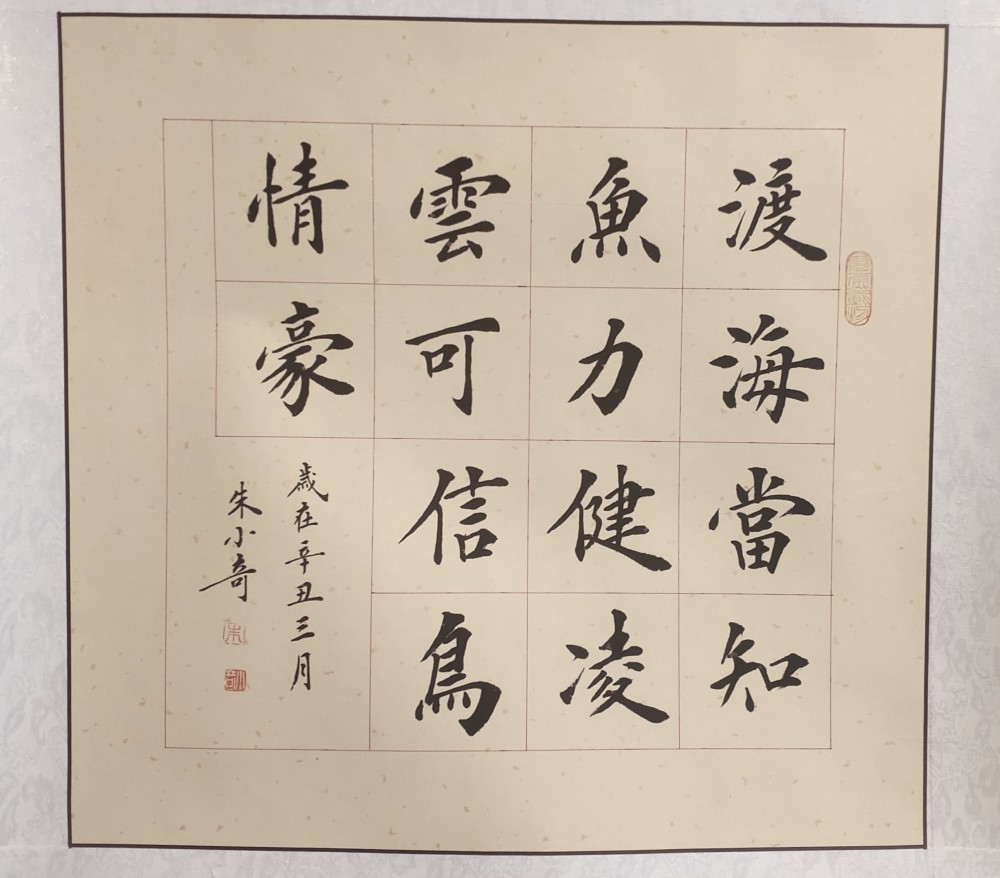 渡海當知
魚力健凌
雲可信鳥
情豪
歲在辛丑三月
朱小奇
朱